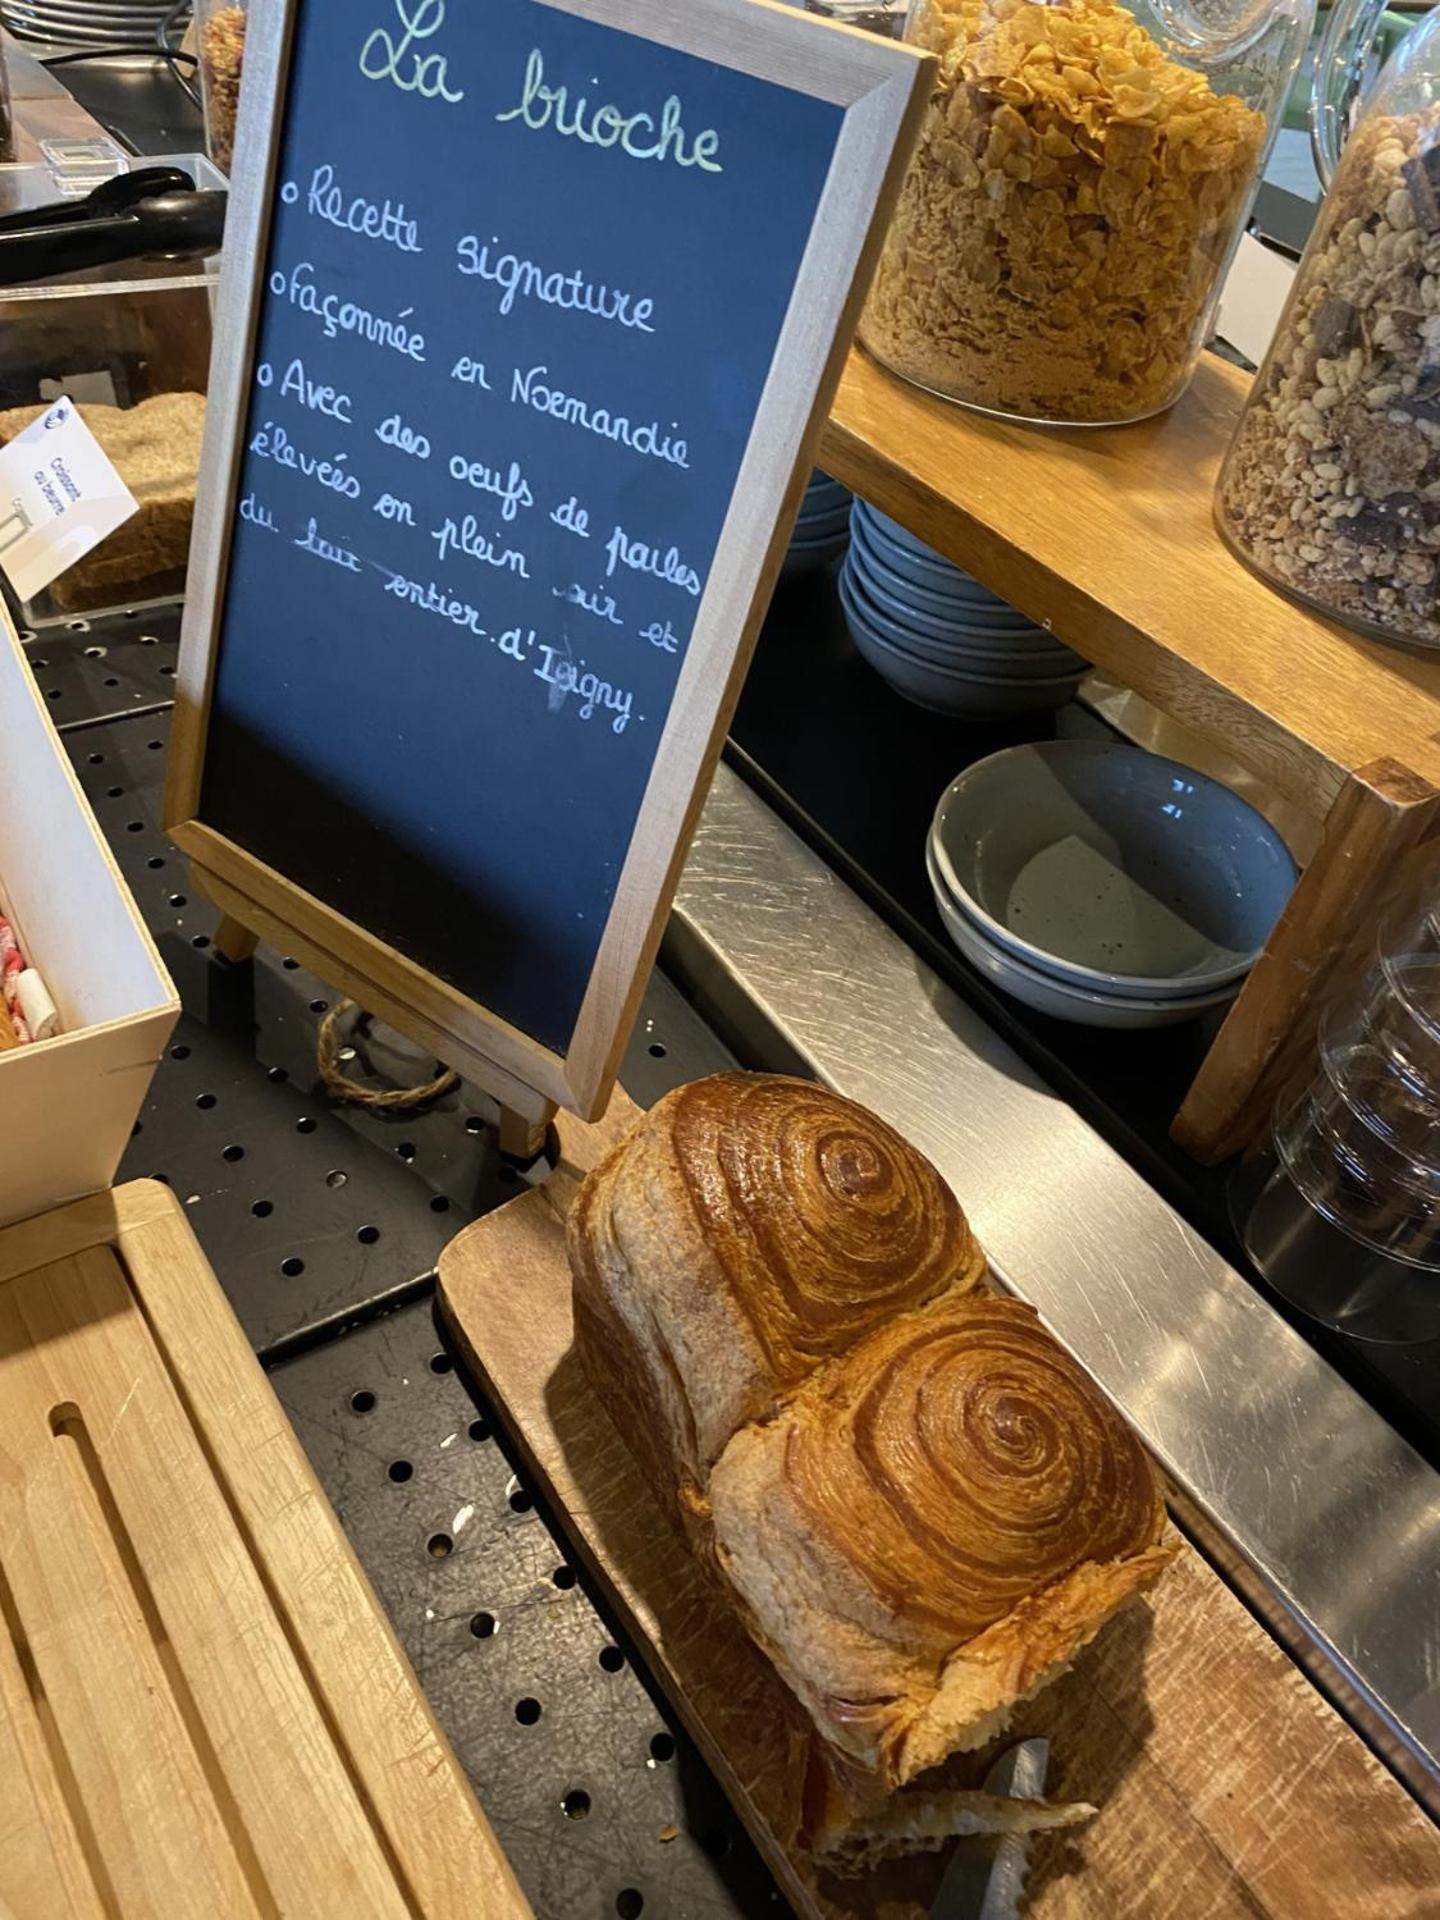 La brioche
o Recette signature
o Façonnée en Normandie
o Avec des oeufs de paules
élevées en plein air et
du lait entier d'Isigny.
Croissant
au beurre